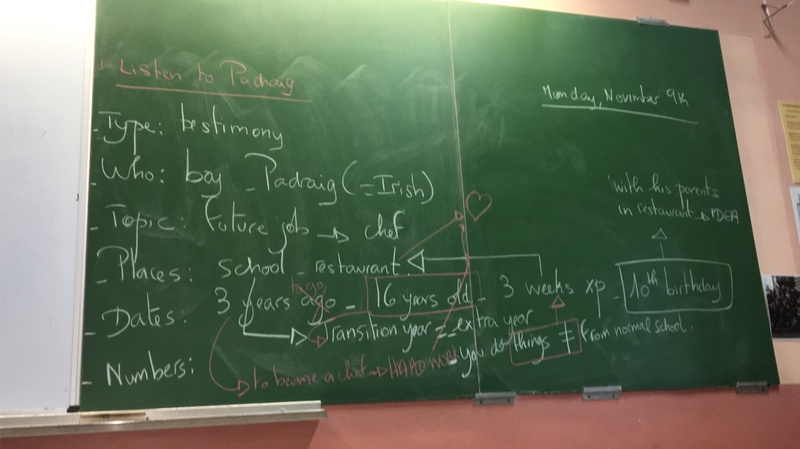 Listen to Padraig
Monday, November 9th
- Type: testimony
- Who: boy - Padraig (= Irish)
with his parents
in restaurant → IDEA
- Topic: Future job → chef
- Places: school - restaurant
to go
- Dates: 3 years ago - 16 years old - 3 weeks xp - 10th birthday
Transition year = - extra year
- you do things ≠ from normal school.
- Numbers:
to become a chef → HARD WORK